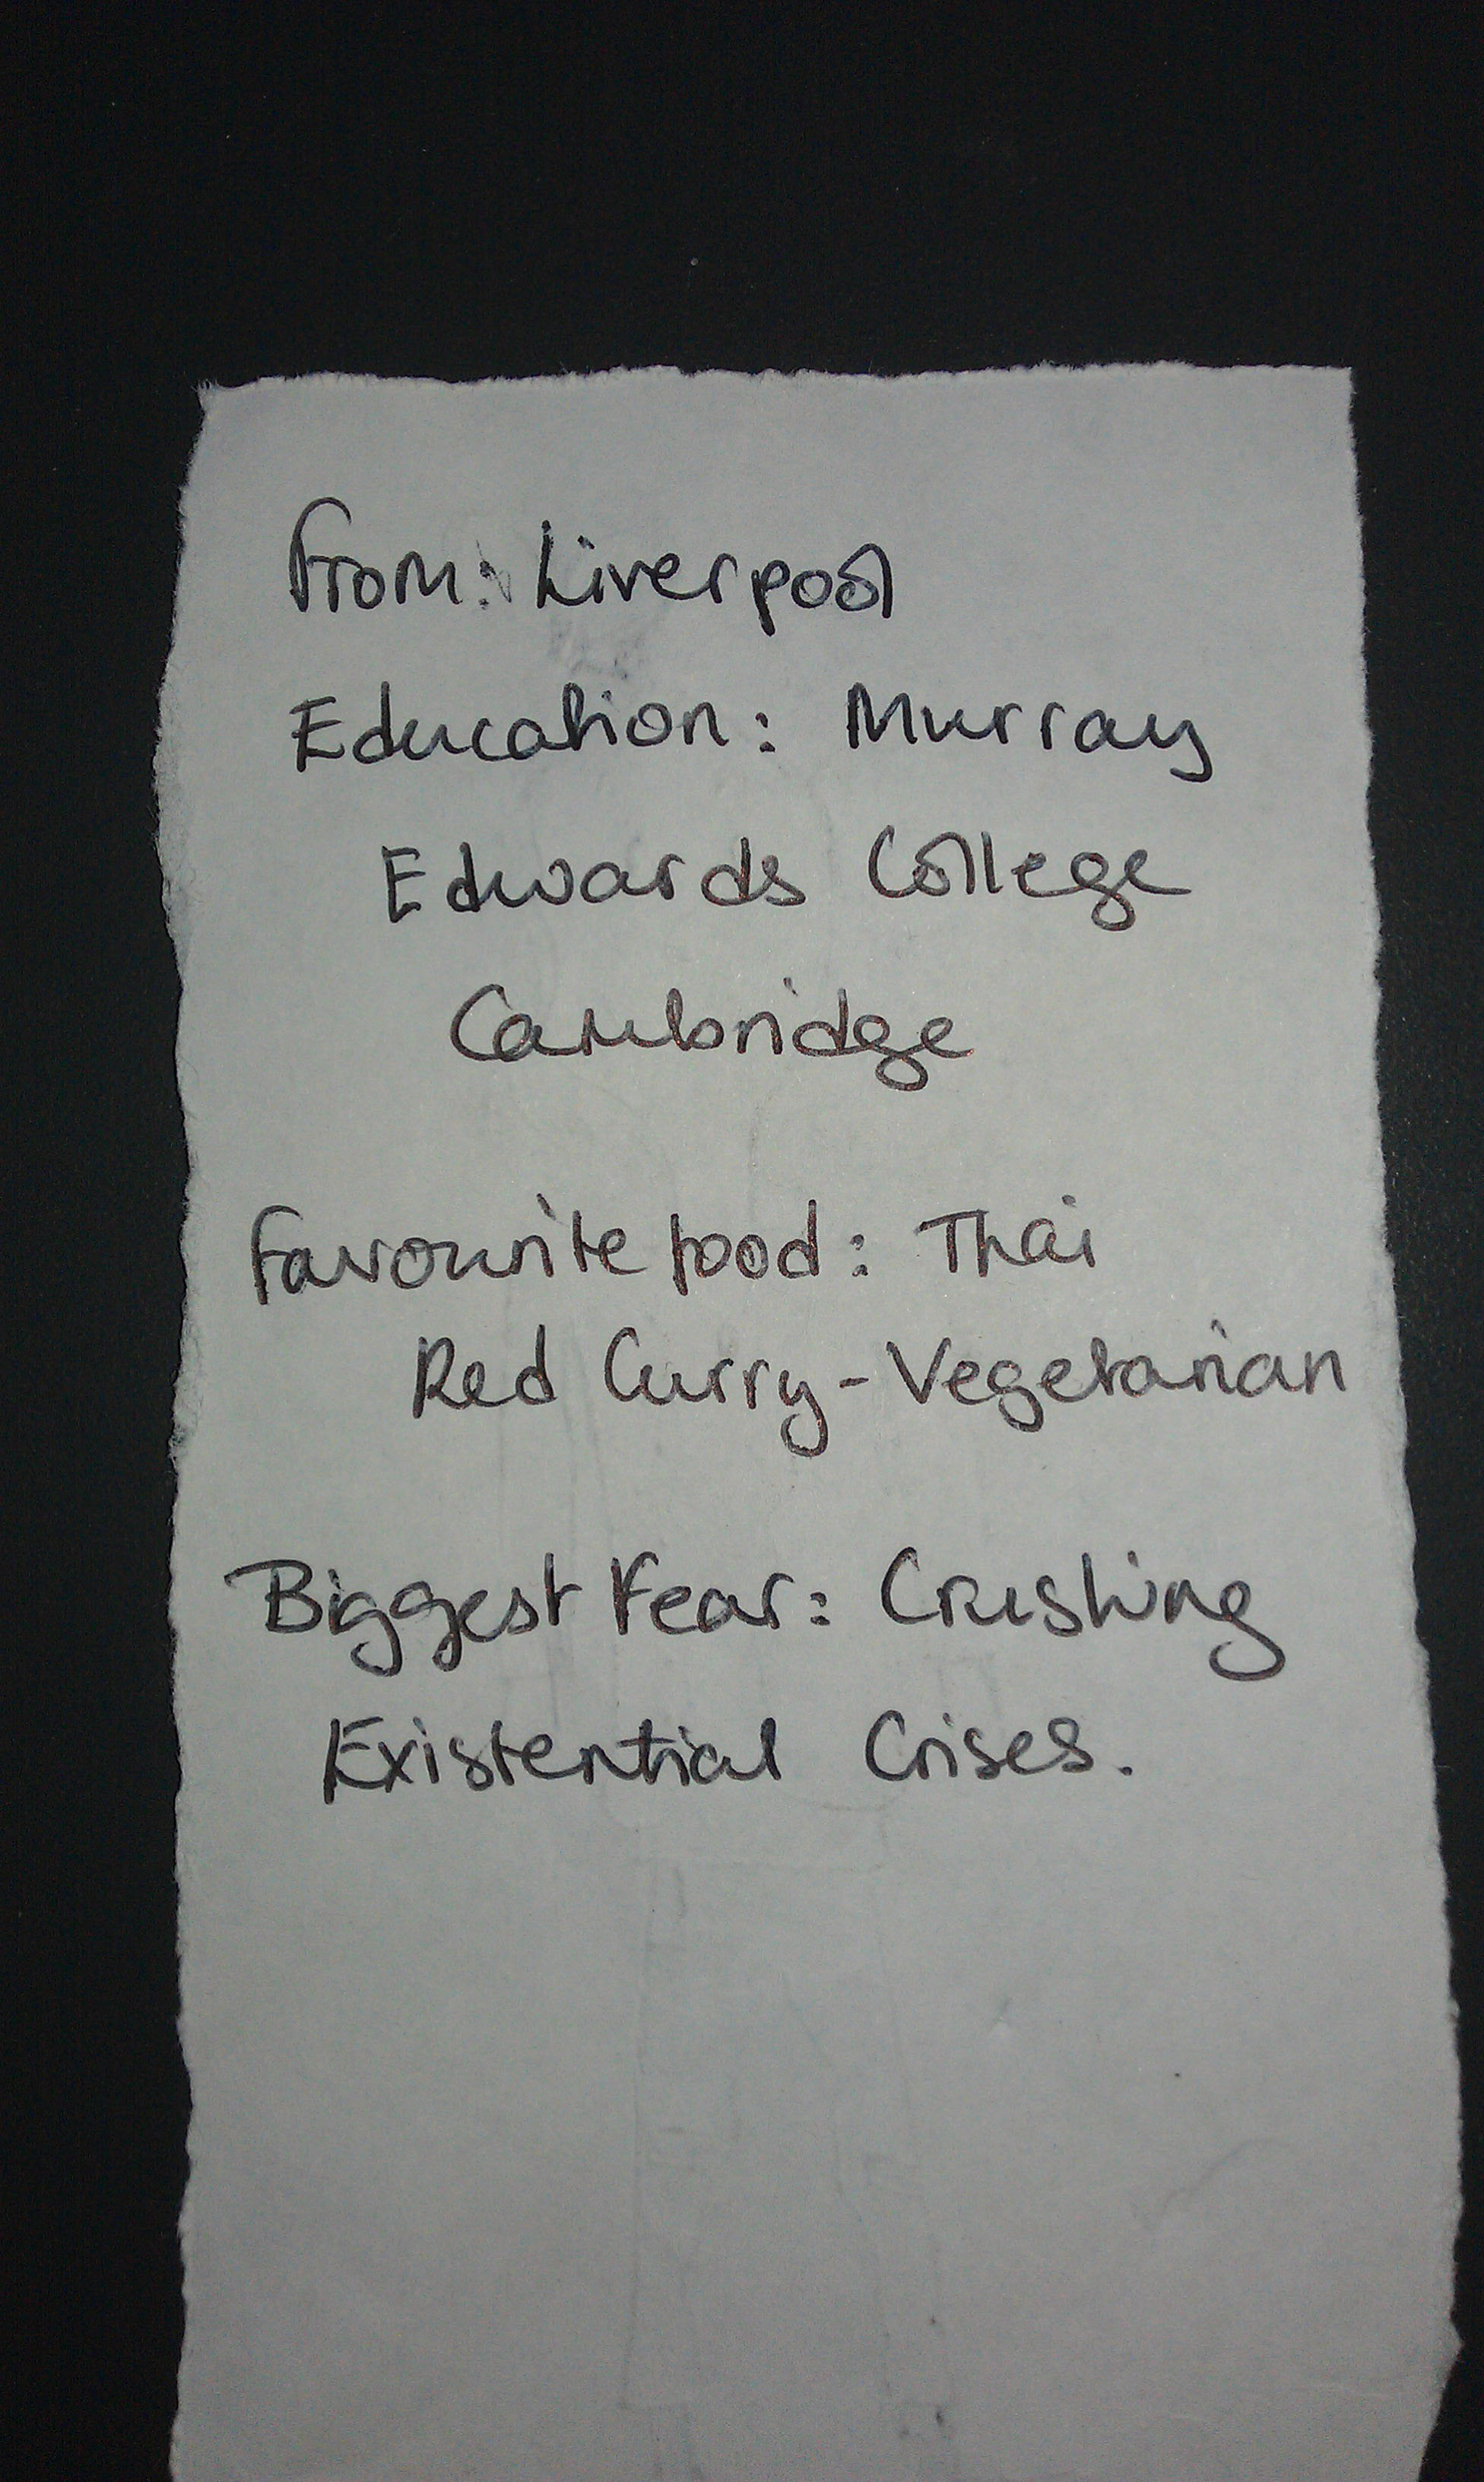 From: Liverpool
Education: Murray
Edwards College
Cambridge
Favourite food: Thai
Red Curry - Vegetarian
Biggest Fear: Crushing
Existential Crises.